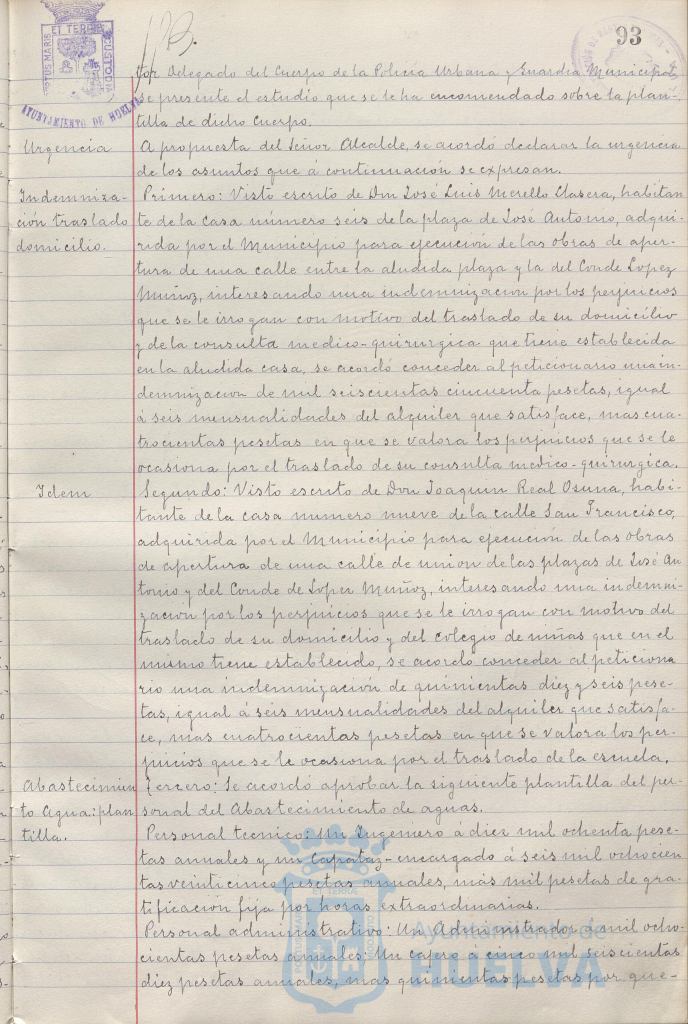 93
PORTUS MARIS ET TERRÆ CUSTODIA
AYUNTAMIENTO DE HUELVA
tor Delegado del Cuerpo de la Policía Urbana y Guardia Municipal,
se presente el estudio que se le ha encomendado sobre la plan-
tilla de dicho Cuerpo.
Urgencia
A propuesta del Señor Alcalde, se acordó declarar la urgencia
de los asuntos que á continuación se expresan.
Indemniza-
ción traslado
domicilio.
Primero: Visto escrito de Don José Luis Morello Clasera, habitan
te de la casa número seis de la plaza de José Antonio, adqui-
rida por el Municipio para ejecución de las obras de aper-
tura de una calle entre la aludida plaza y la del Conde Lopez
Muñoz, interesando una indemnizacion por los perjuicios
que se le irrogan con motivo del traslado de su domicilio
y de la consulta medico-quirurgica que tiene establecida
en la aludida casa, se acordó conceder al peticionario una in-
demnizacion de mil seiscientas cincuenta pesetas, igual
á seis mensualidades del alquiler que satisface, mas cua-
trocientas pesetas en que se valora los perjuicios que se le
ocasiona por el traslado de su consulta medico-quirurgica.
Idem
Segundo: Visto escrito de Don Joaquin Real Osuna, habi-
tante de la casa numero nueve de la calle San Francisco,
adquirida por el Municipio para ejecución de las obras
de apertura de una calle de union de las plazas de José An-
tonio y del Conde de Lopez Muñoz, interesando una indemni-
zacion por los perjuicios que se le irrogan con motivo del
traslado de su domicilio y del colegio de niñas que en el
mismo tiene establecido, se acordo conceder al peticiona
rio una indemnización de quinientas diez y seis pese-
tas, igual á seis mensualidades del alquiler que satisfa-
ce, mas cuatrocientas pesetas en que se valora los per-
juicios que se le ocasiona por el traslado de la escuela.
Abastecimien
to Agua: plan
tilla.
Tercero: Se acordó aprobar la siguiente plantilla del per-
sonal del Abastecimiento de aguas.
Personal tecnico: Un Ingeniero á diez mil ochenta pese-
tas anuales y un Capataz-encargado á seis mil ochocien
tas veinticinco pesetas anuales, más mil pesetas de gra-
tificación fija por horas extraordinarias.
Personal administrativo: Un Administrador á mil ocho-
cientas pesetas anuales: Un cajero á cinco mil seiscientas
diez pesetas anuales, mas quinientas pesetas por que-
Ayuntamiento de
HUELVA